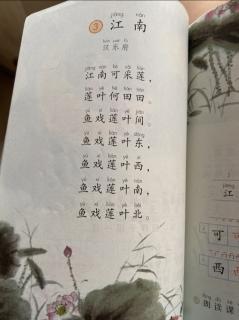 jiāng nán
3 江南
hàn yuè fǔ
汉乐府
jiāng nán kě cǎi lián
江南可采莲，
lián yè hé tián tián
莲叶何田田。
yú xì lián yè jiān
鱼戏莲叶间。
yú xì lián yè dōng
鱼戏莲叶东，
yú xì lián yè xī
鱼戏莲叶西，
yú xì lián yè nán
鱼戏莲叶南，
yú xì lián yè běi
鱼戏莲叶北。
jiāng
江
可
西
朗读课